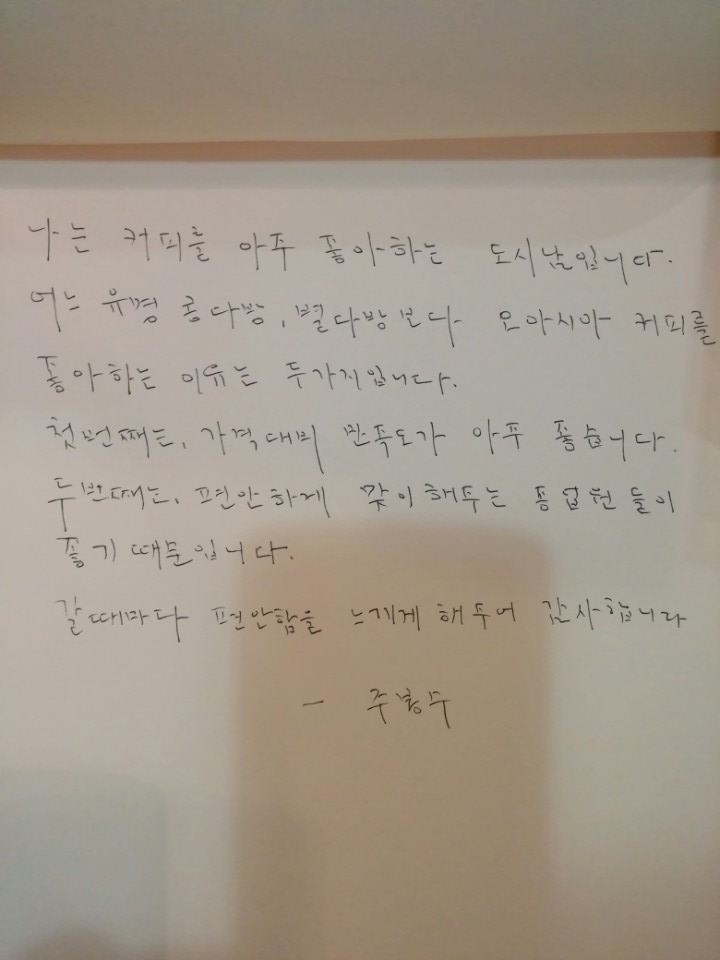 나는 커피를 아주 좋아하는 도시남입니다.
어느 유명 콩다방, 별다방보다 오아시아 커피를
좋아하는 이유는 두가지입니다.
첫번째는, 가격대비 만족도가 아주 좋습니다.
두번째는, 편안하게 맞이해주는 종업원들이
좋기 때문입니다.
갈때마다 편안함을 느끼게 해주어 감사합니다
- 주봉수